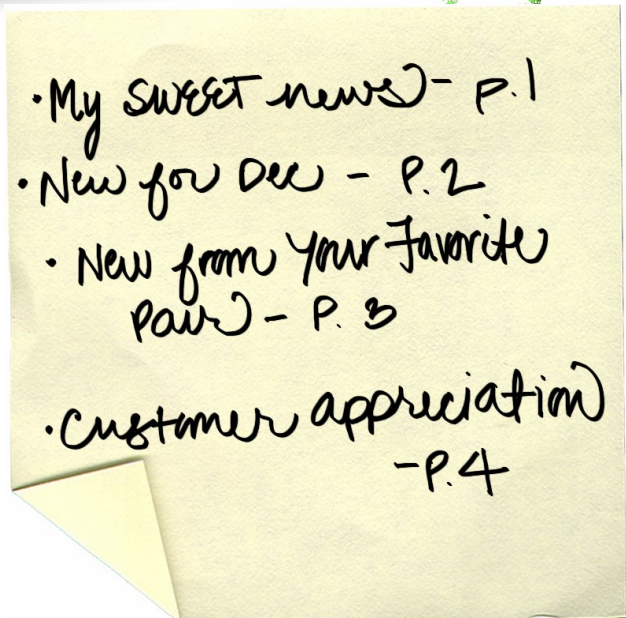 •My SWEET news- p.1
•New for Dec - P.2
• New from Your Favorite
Pair - P. 3
•Customer appreciation
-P.4